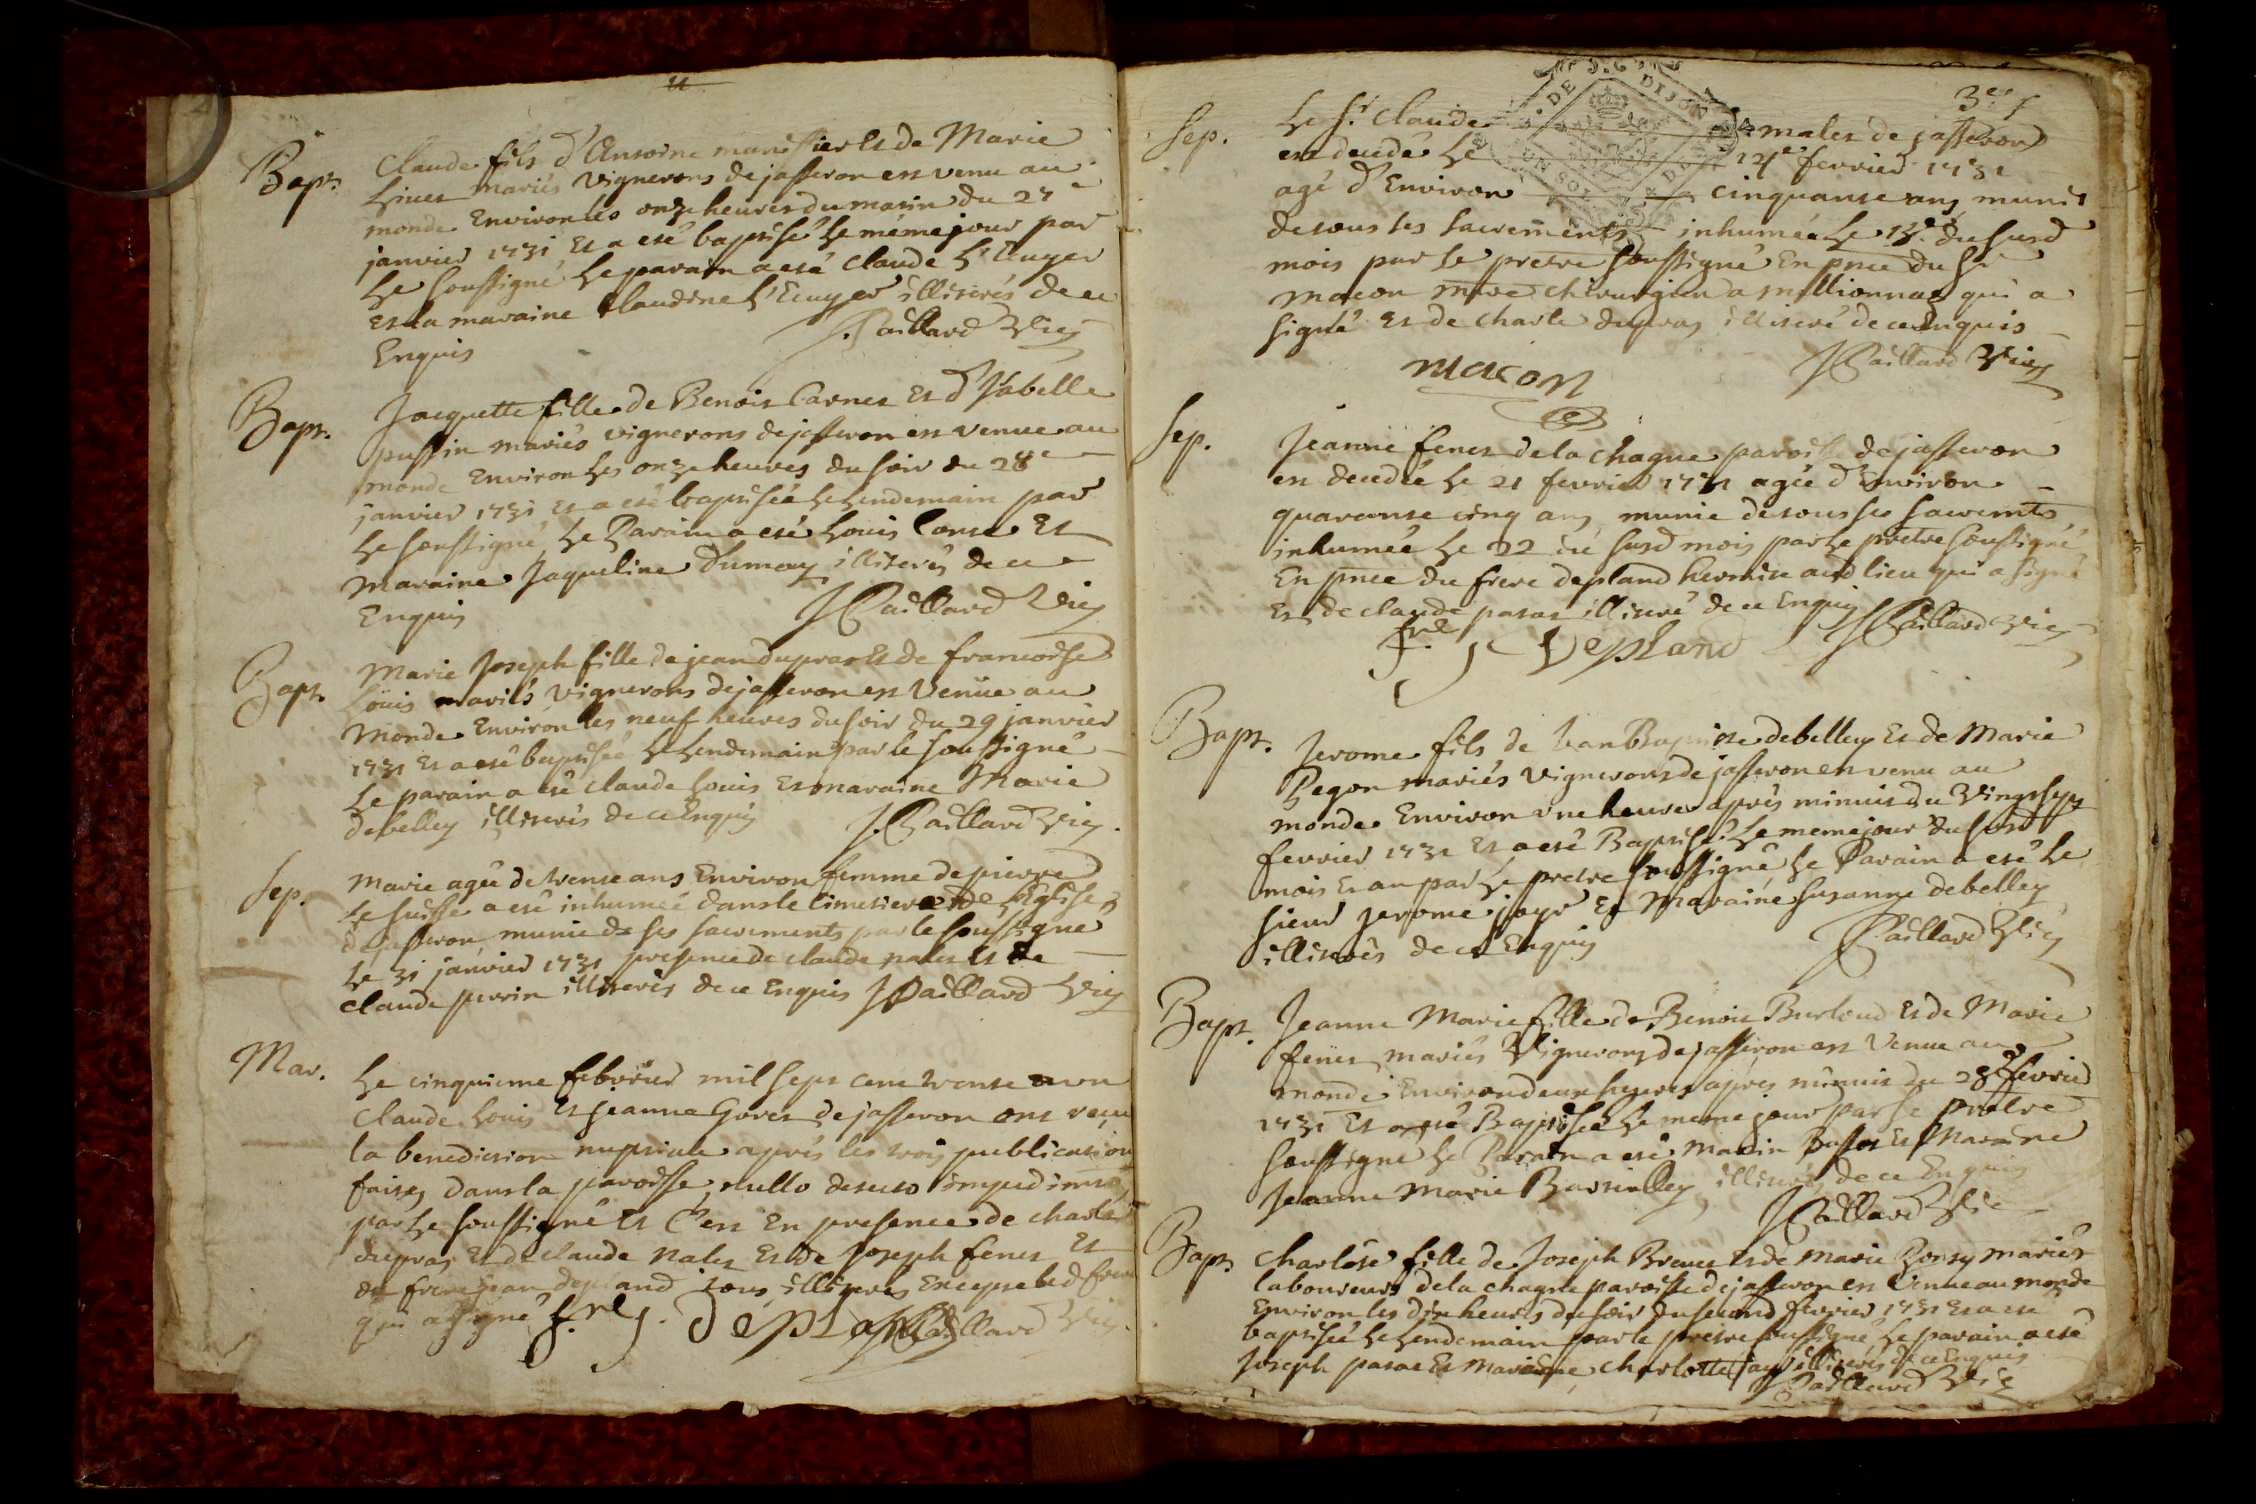 Bapt.
Claude fils d'Antoine munissier Et de Marie
mariés vignerons de jasseron est venu au
monde Environ les onze heures du matin du 27e
janvier 1731 Et a eté baptisé le même jour par
le soussigné le parain a eté Claude L'Ecuyer
Et la maraine Claudine L'Ecuyer illiterés de ce
Enquis J. Paillard Vic
Bapt.
Jacquette fille de Benoit Carnet Et d'Isabelle
mariés vignerons de jasseron est venue au
monde Environ les onze heures du soir du 28e
janvier 1731 Et a eté baptisée le lendemain par
le soussigné le Parain a eté Louis Et
Maraine Jaqueline Dumay illiterés de ce
Enquis J Paillard Vic
Bapt.
Marie Joseph fille de jean dupras Et de francoise
Loüis mariés vignerons de jasseron est Venüe au
Monde Environ les neuf heures du soir du 29 janvier
1731 Et a eté baptisée le lendemain par le soussigné
le parain a eté Claude Louis Et maraine Marie
debelley illiterés de ce Enquis J. Paillard Vic.
Sep.
Marie agée de trente ans Environ femme de pierre
le suisse a eté inhumée dans le cimetiere de l'Eglise
de jasseron munie de ses sacrements par le soussigné
le 31 janvier 1731 presence de claude nalet et de
claude perrin illiterés de ce Enquis J Paillard Vic
Mar.
Le cinquieme febvrier mil sept cent trente et un
Claude Louis Et Jeanne Goret de jasseron ont reçu
la benediction nuptiale aprés les trois publications
faites dans la paroisse nullo detecto impedimto
par le soussigné Et c'est En presence de charle
dupras Et de Claude Nalet Et de Joseph fenet Et
de frere jean depland tous illiterés Excepté led frere
qui a signé f.re j. Depland J Paillard Vic.
3e f
DE DIJON
UN SOL
Sep.
Le Sr. Claude malet de jasseron
est decedé le 12e fevrier 1731
agé d'Environ cinquante ans munis
de tous ses sacrements inhumée le 13e. du susd
mois par le pretre soussigné En pnce du Sr
macon mtre chirurgien a millionnas qui a
signé Et de charle dupras illiteré de ce Enquis
macon J Paillard Vic
Sep.
Jeanne fenet de la chagne paroisse de jasseron
est decedée le 21 fevrier 1731 agée d'Environ
quarante cinq ans munie de tous ses sacremts
inhumée le 22 du susd mois par le pretre soussigné
En pnce du frere depland hermite aud lieu qui a signé
Et de claude patat illiteré de ce Enquis J Paillard Vic
f.re j Depland
Bapt.
Jerome fils de Jean Baptiste debelley Et de Marie
Pegon mariés vignerons de jasseron est venu au
monde Environ une heure aprés minuit du Vingt sept
fevrier 1731 Et a eté Baptisé le meme jour du susd
mois Et an par le pretre soussigné le Parain a eté le
sieur jerome jayr Et Maraine Susanne debelley
illiterés de ce Enquis J Paillard Vic
Bapt.
Jeanne Marie fille de Benoit Burtoud Et de Marie
fenet mariés Vignerons de jasseron est Venue au
monde Environ deux heures aprés minuit du 28e fevrier
1731 Et a eté Baptisée le meme jour par le pretre
soussigné le Parain a eté Martin Et Maraine
Jeanne Marie illiterés de ce Enquis
J Paillard Vic
Bapt.
Charlote fille de Joseph Et de Marie mariés
laboureurs de la chagne paroisse de jasseron est Venue au monde
Environ les dix heures du soir du second fevrier 1731 Et a eté
baptisée le lendemain par le pretre soussigné le parain a eté
Joseph patat Et Maraine Charlotte jayr illiterés de ce Enquis
J Paillard Vic